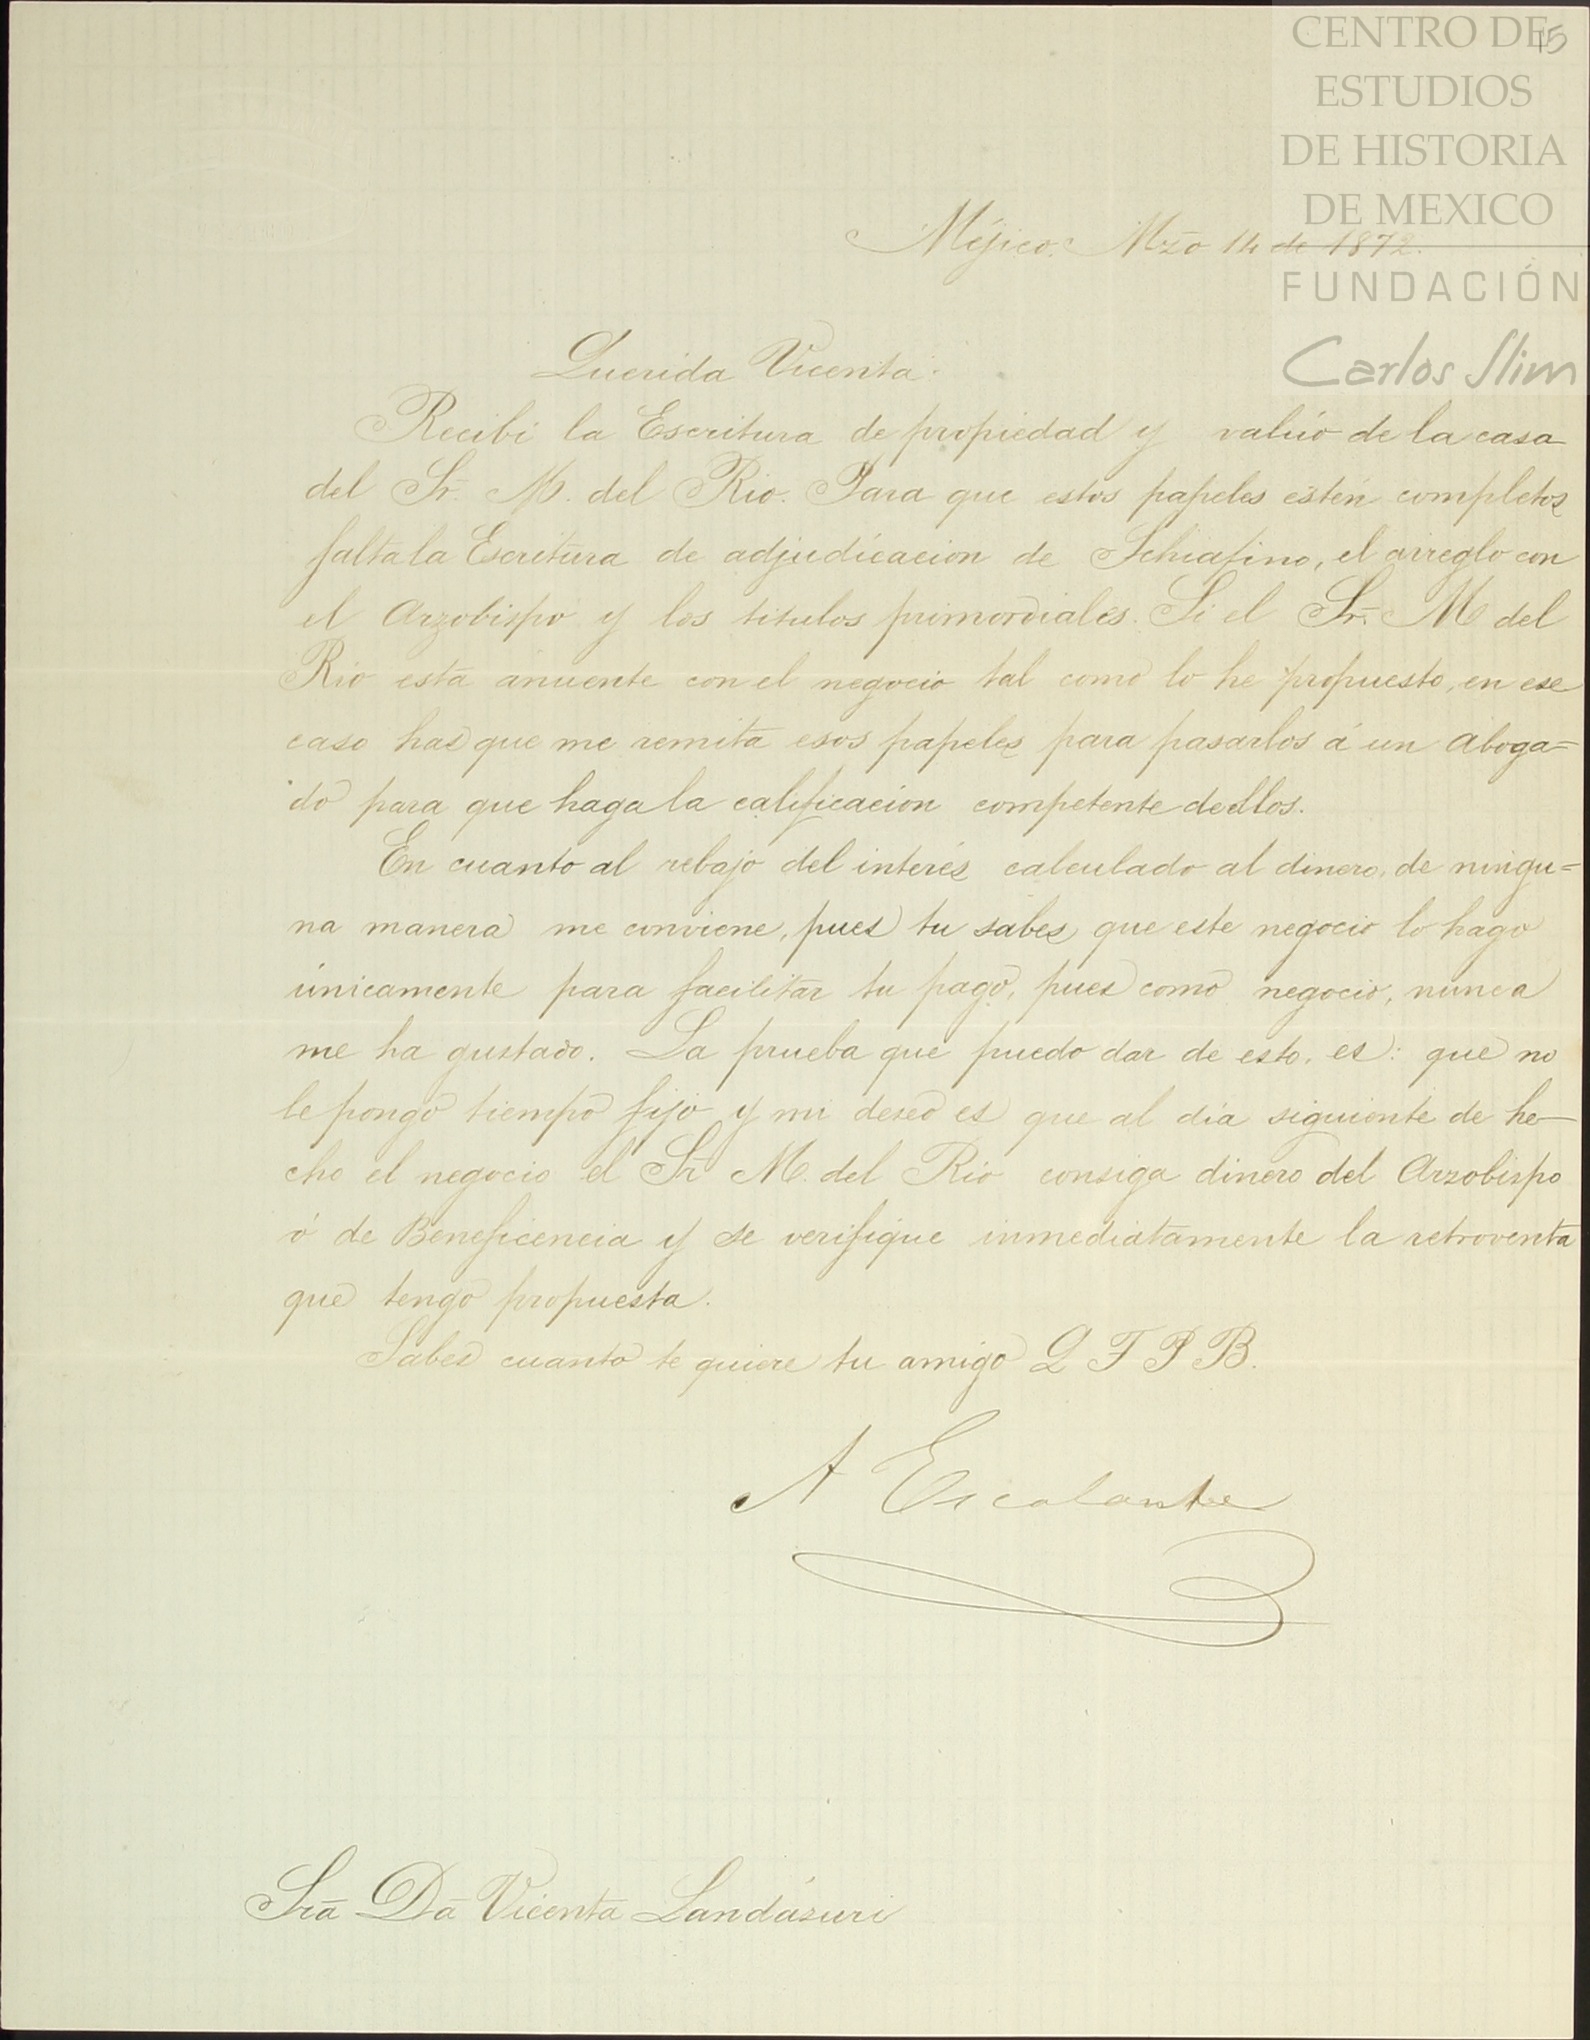 CENTRO DE
15
ESTUDIOS
DE HISTORIA
DE MEXICO
FUNDACIÓN
Carlos Slim
Méjico. Mzo 14 de 1872.
Querida Vicenta.
Recibí la Escritura de propiedad y valúo de la casa
del Sr. M. del Rio. Para que estos papeles estén completos
falta la Escritura de adjudicacion de Schiafino, el arreglo con
el Arzobispo y los titulos primordiales. Si el Sr. M del
Rio está anuente con el negocio tal como lo he propuesto, en ese
caso has que me remita esos papeles para pasarlos á un Aboga=
do para que haga la calificacion competente de ellos.
En cuanto al rebajo del interés calculado al dinero, de ningu=
na manera me conviene, pues tu sabes que este negocio lo hago
únicamente para facilitar tu pago, pues como negocio, nunca
me ha gustado. La prueba que puedo dar de esto, es: que no
le pongo tiempo fijo y mi deseo es que al dia siguiente de he-
cho el negocio el Sr M. del Rio consiga dinero del Arzobispo
ó de Beneficencia y se verifique inmediatamente la retroventa
que tengo propuesta.
Sabes cuanto te quiere tu amigo Q T P B.
A Escalante
Sra Da Vicenta Landázuri